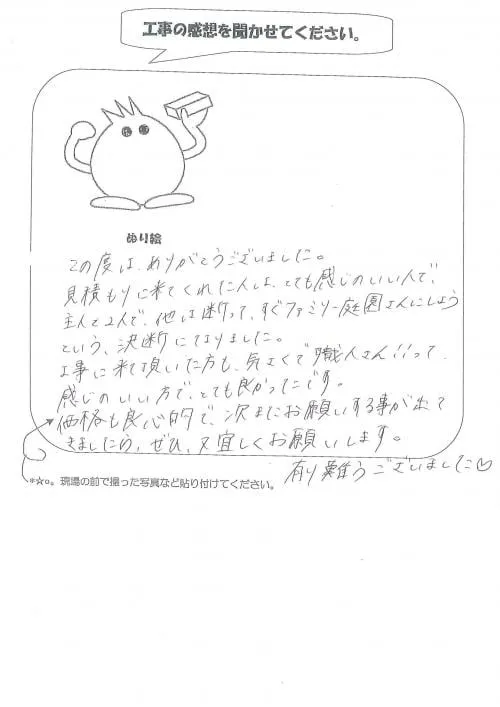 工事の感想を聞かせてください。
ぬり絵
この度は、ありがとうございました。
見積もりに来てくれた人は、とても感じのいい人で、
主人と2人で、他は断って、すぐファミリー庭園さんにしよう
という、決断に至りました。
工事に来て頂いた方も、気さくで職人さん!!って
感じのいい方で、とても良かったです。
価格も良心的で、次またお願いする事が出て
きましたら、ぜひ、又宜しくお願いします。
有り難うございました♡
*☆○。現場の前で撮った写真など貼り付けてください。